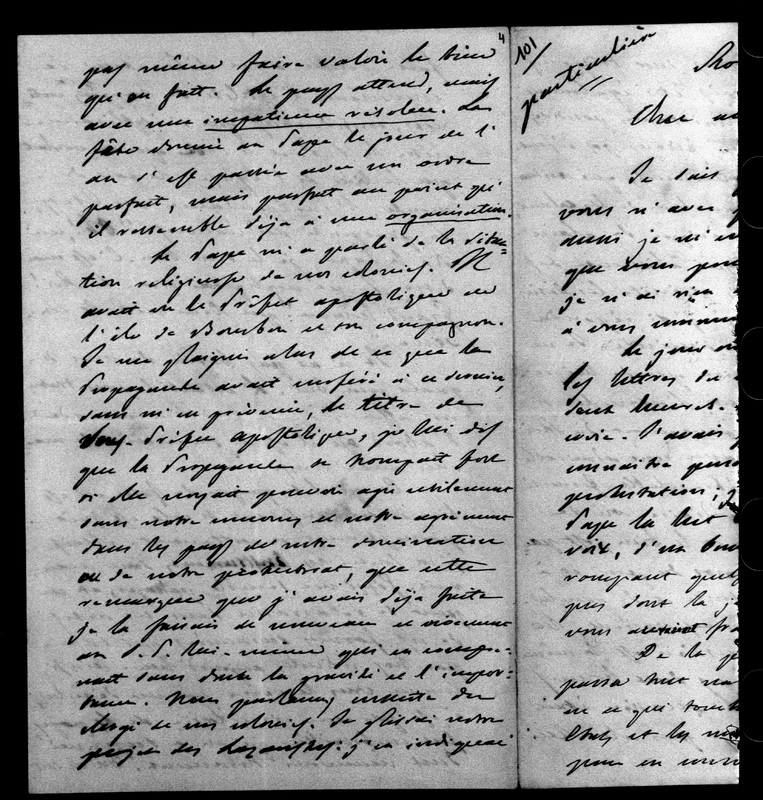 4
pas même faire valoir le bien
qu'on fait. Le pays attend, mais
avec une impatience résolue. La
fête donnée au Pape le jour de l'
an s'est passée avec un ordre
parfait, mais parfait au point qu'
il ressemble déja à une organisation.
Le Pape m'a parlé de la situa=
tion religieuse de nos colonies. Il
avait vu le Préfet apostolique de
l'ile de Bourbon et son compagnon.
Je me plaignis alors de ce que la
Propagande avait conféré à ce dernier,
sans m'en prévenir, le titre de
Préfet apostolique, je lui dis
que la Propagande se trompait fort
si elle croyait pouvoir agir utilement
sans notre concours et notre agrément
dans les pays de notre domination
ou de notre protectorat, que cette
remarque que j'avais déja faite
je la faisais de nouveau et vivement
au S. P. lui-même qui en compre-
nait sans doute la gravité et l'impor-
tance. Nous parlames ensuite du
clergé de nos colonies. Je glissai notre
projet des Lazaristes: j'en indiquai
101
particulière
Ro
Cher
Je sais
vous n'avez
aussi je
que vous
je n'ai rien
à vous
Le jour
les lettres du
voix. J'avais
connaitre
protestation;
Pape la lut
voix, d'un
rompant
dont la
vous
De la
passa
en ce qui
Etats et les
pour en